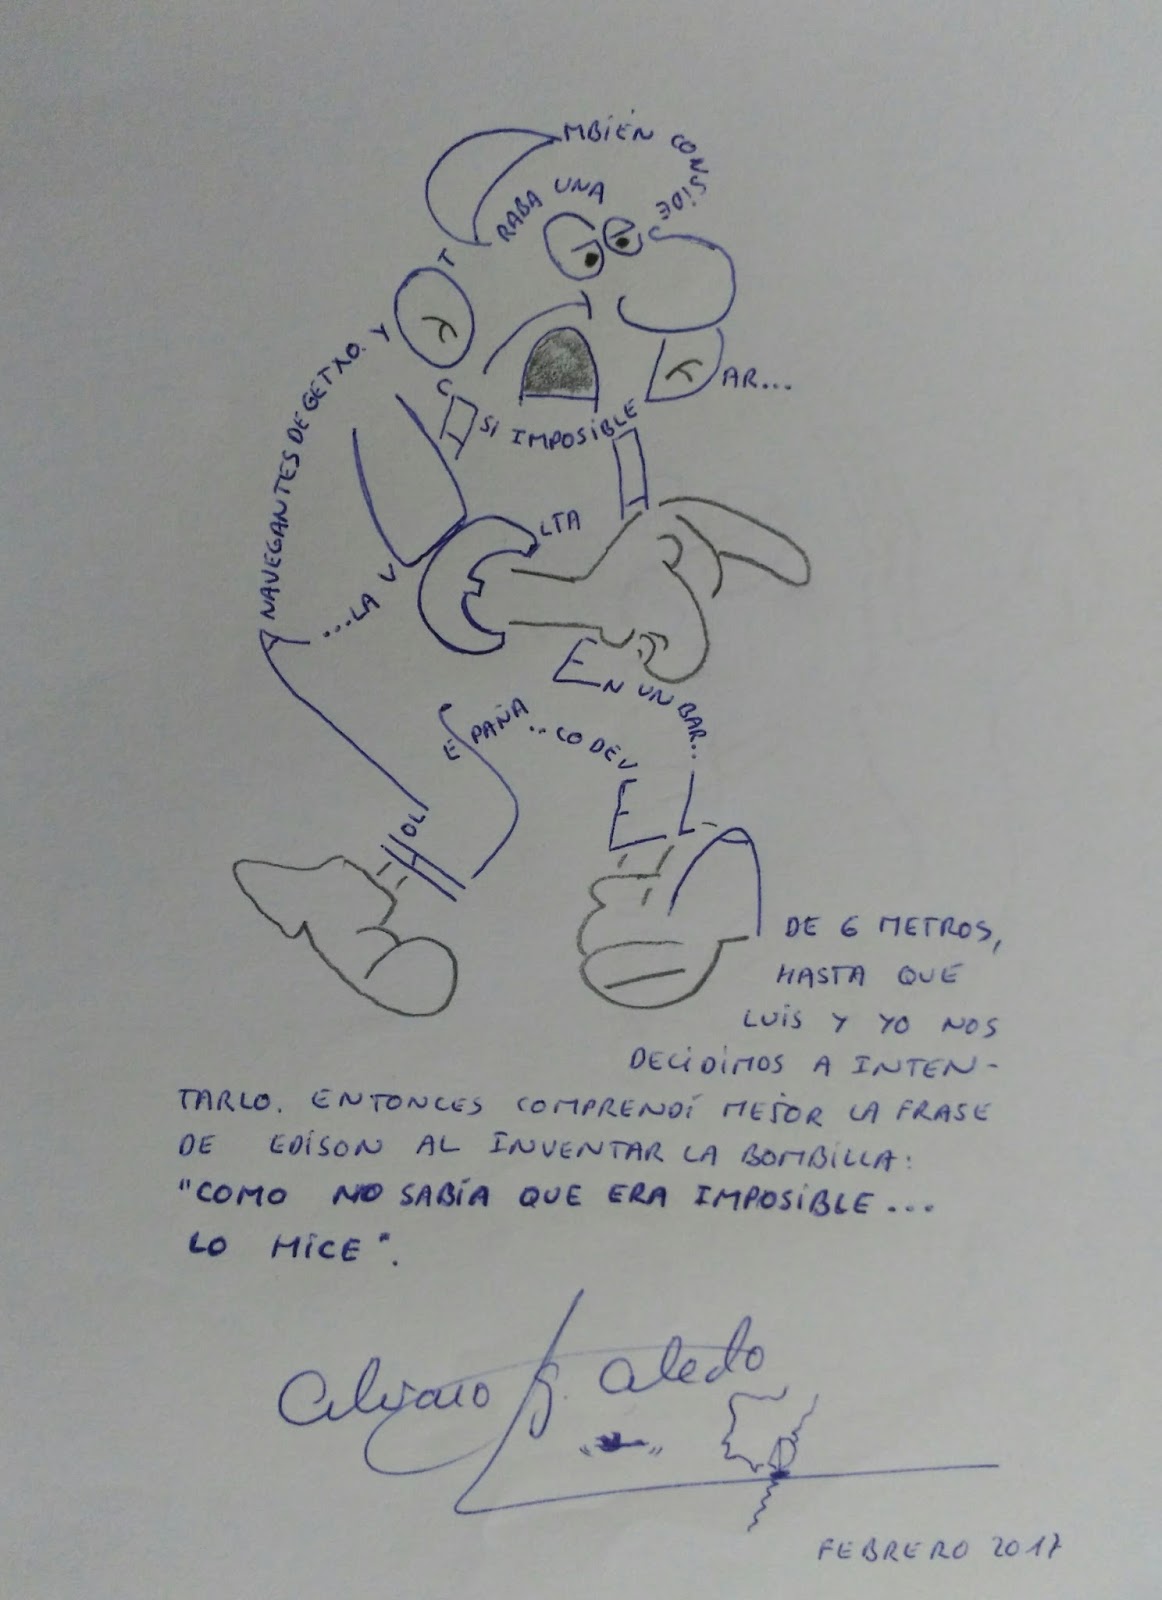 NAVEGANTES DE GETXO. Y
T
MBIÉN CONSIDE
RABA UNA
C
SI IMPOSIBLE
AR...
...LA V
LTA
E PAÑA..
EN UN BAR..
..CO DE V
EL
DE 6 METROS,
HASTA QUE
LUIS Y YO NOS
DECIDIMOS A INTEN-
TARLO. ENTONCES COMPRENDÍ MEJOR LA FRASE
DE EDISON AL INVENTAR LA BOMBILLA:
"COMO NO SABÍA QUE ERA IMPOSIBLE...
LO HICE".
Alvaro G. Aledo
FEBRERO 2017